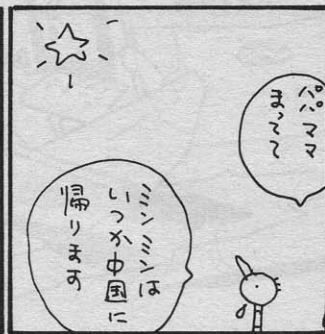 パパママ
まってて
ミンミンは
いつか中国に
帰ります